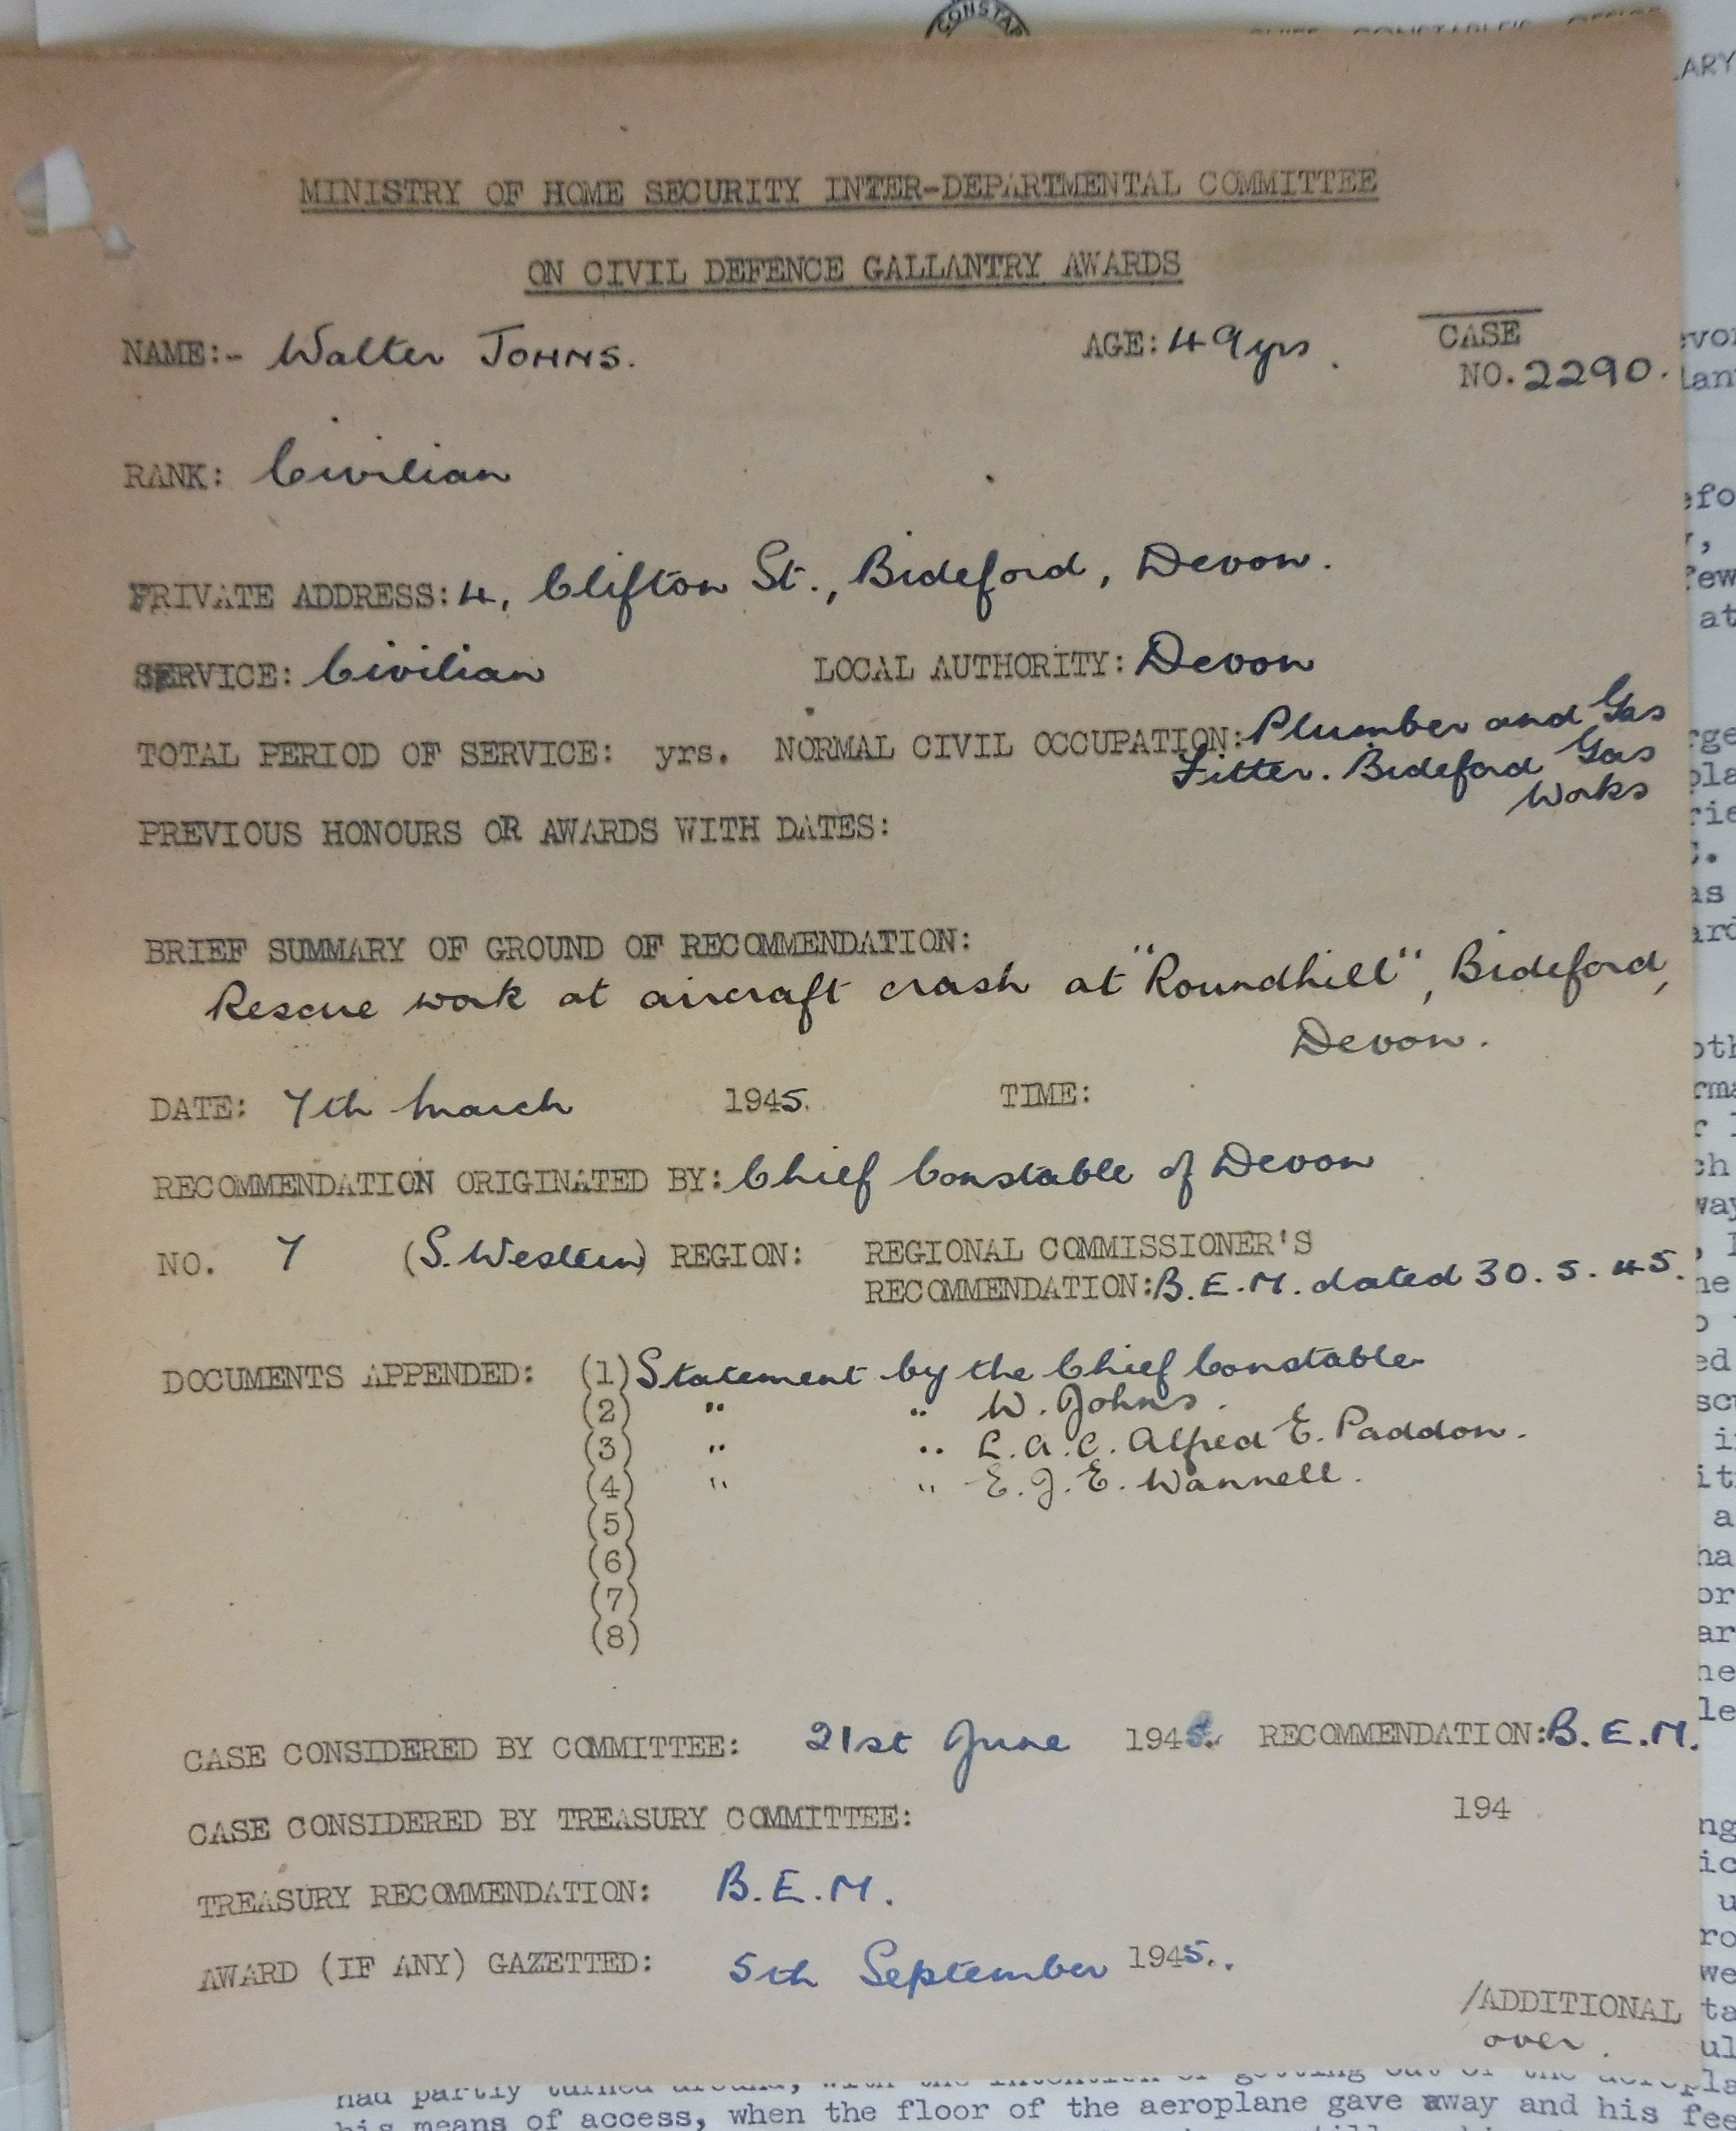 CONSTAB
CHIEF CONSTABLE'S OFFICE
MINISTRY OF HOME SECURITY INTER-DEPARTMENTAL COMMITTEE
ON CIVIL DEFENCE GALLANTRY AWARDS
NAME:- Walter JOHNS. AGE: 49yrs. CASE
NO. 2290.
RANK: Civilian
PRIVATE ADDRESS: 4, Clifton St., Bideford, Devon.
SERVICE: Civilian LOCAL AUTHORITY: Devon
TOTAL PERIOD OF SERVICE: yrs. NORMAL CIVIL OCCUPATION: Plumber and Gas
Fitter. Bideford Gas
Works
PREVIOUS HONOURS OR AWARDS WITH DATES:
BRIEF SUMMARY OF GROUND OF RECOMMENDATION:
Rescue work at aircraft crash at "Roundhill", Bideford,
Devon.
DATE: 7th March 1945. TIME:
RECOMMENDATION ORIGINATED BY: Chief Constable of Devon
NO. 7 (S. Western) REGION: REGIONAL COMMISSIONER'S
RECOMMENDATION: B.E.M. dated 30.5.45.
DOCUMENTS APPENDED: (1) Statement by the Chief Constable
(2) " " W. Johns.
(3) " " L.A.C. Alfred E. Paddon.
(4) " " E.J.E. Wannell.
(5)
(6)
(7)
(8)
CASE CONSIDERED BY COMMITTEE: 21st June 1945. RECOMMENDATION: B.E.M.
CASE CONSIDERED BY TREASURY COMMITTEE: 194
TREASURY RECOMMENDATION: B.E.M.
AWARD (IF ANY) GAZETTED: 5th September 1945..
/ADDITIONAL
over.
had partly turned around, with the intention of getting out of the
his means of access, when the floor of the aeroplane gave away and his fee